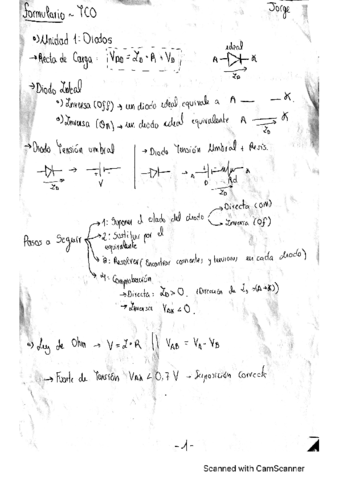 Formulario - TCO
Jorge
o) Unidad 1: Diodos
→ Recta de Carga: V_AB = I_D · R + V_D
ideal
A K
I_D
→ Diodo Ideal
o) Inversa (Off) → un diodo ideal equivale a A — — K
o) Inversa (On) → un diodo ideal equivalente A K
I_D
→ Diodo Tensión umbral
→ Diodo Tensión Umbral + Resis.
I_D
V
Rd
Pasos a Seguir
1: Suponer el estado del diodo
Directa (ON)
Inversa (Off)
2: Sustituir por el
equivalente
3: Resolver (encontrar corrientes y tensiones en cada diodo)
4: Comprobación
→ Directa: I_D > 0. (Dirección de I_D (A→K))
→ Inversa V_AK < 0.
o) Ley de Ohm → V = I · R || V_AB = V_A - V_B
→ Fuente de Tensión V_AK < 0.7 V - Suposición correcta
-1-
Scanned with CamScanner